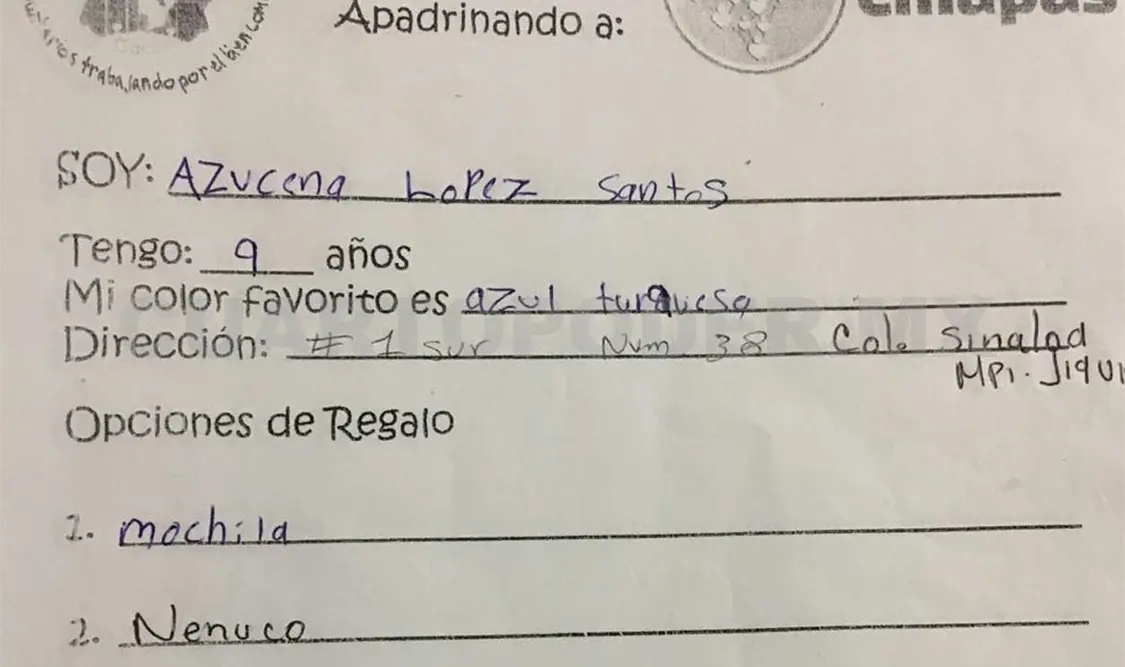 Apadrinando a:
trabajando por el bien com
SOY: AZucena Lopez Santos
Tengo: 9 años
Mi color favorito es azul turquesa
Dirección: # 1 sur Num 38 Col. Sinaloa
MPi. Jiqui
Opciones de Regalo
1. mochila
2. Nenuco